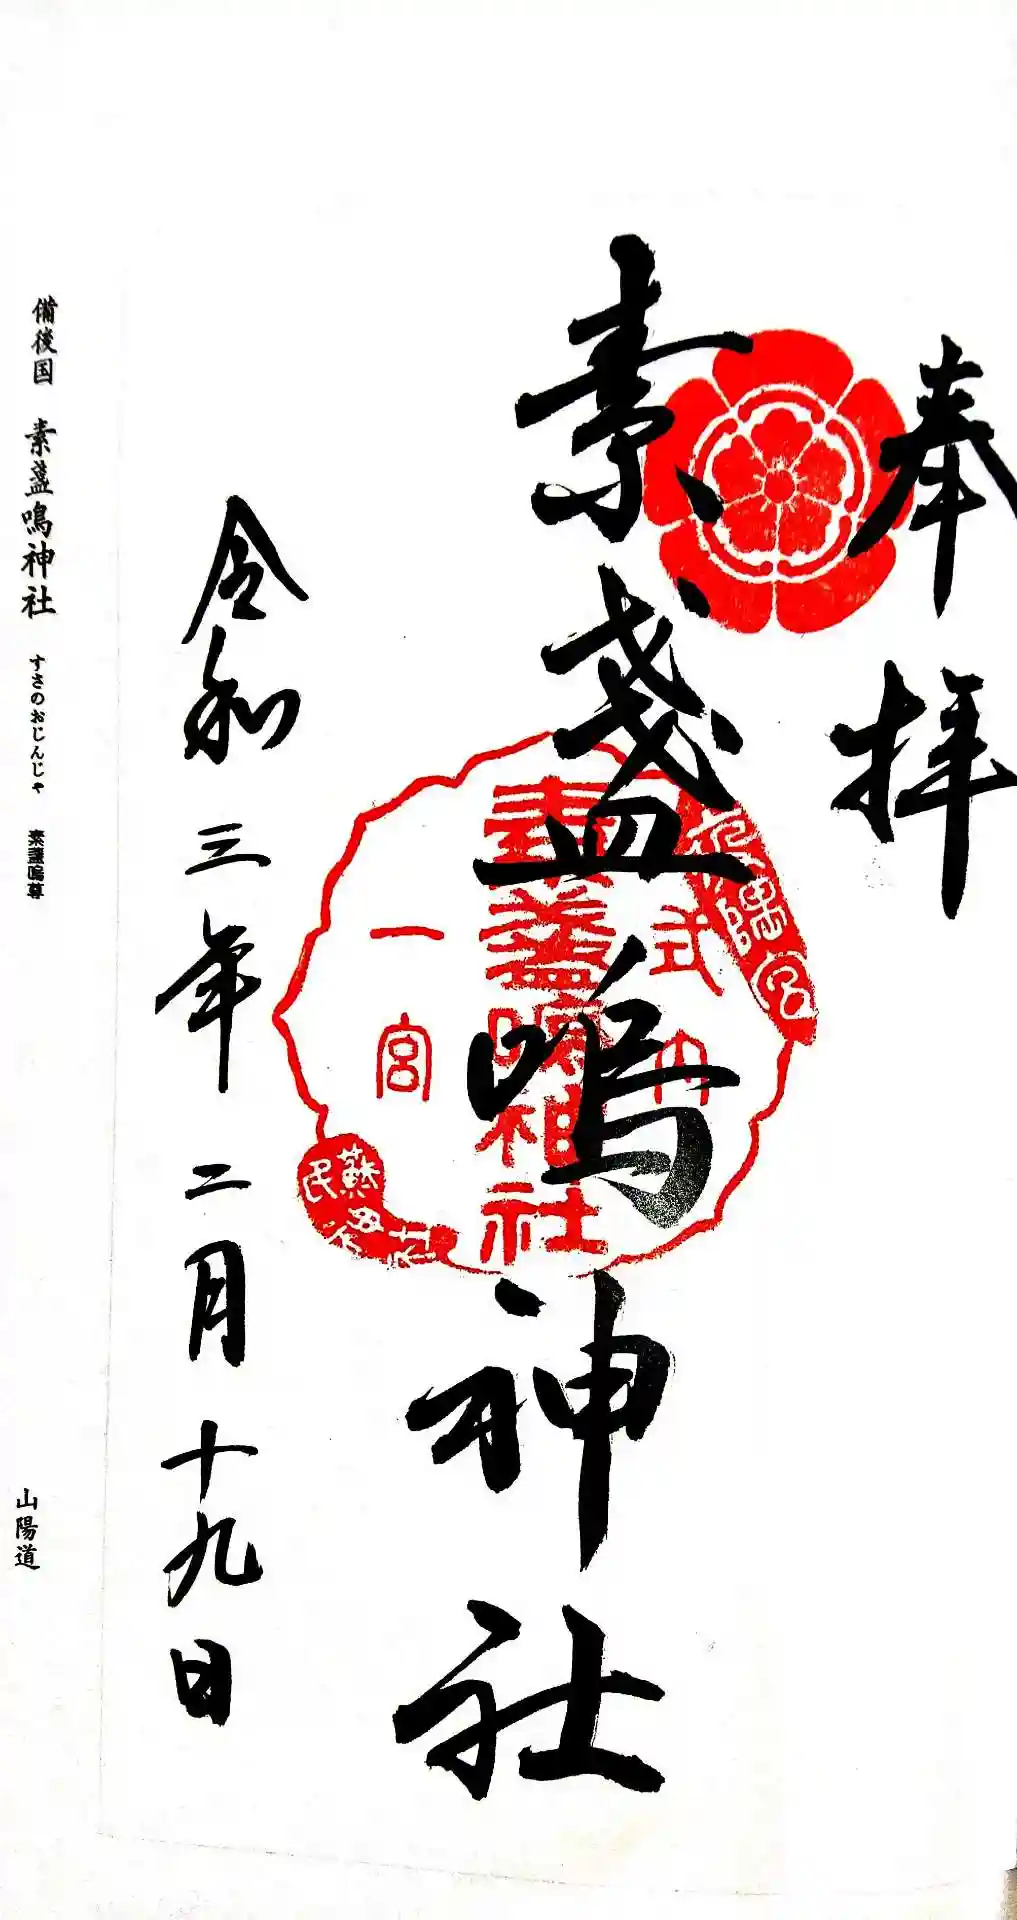 奉拝
素盞嗚神社
令和三年二月十九日
素盞嗚神社
式内
一宮
蘇民
備後国 素盞嗚神社 すさのおじんじゃ 素盞嗚尊
山陽道